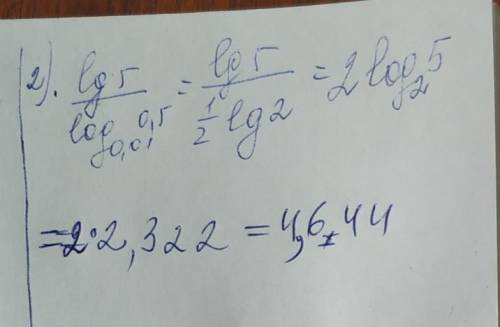 2). lg 5 / log_{0,01} 0,5 = lg 5 / (1/2 lg 2) = 2 log_2 5
= 2 · 2,322 = 4,644